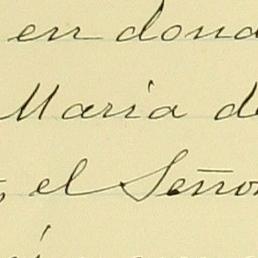 en dond
Maria de
el Señor